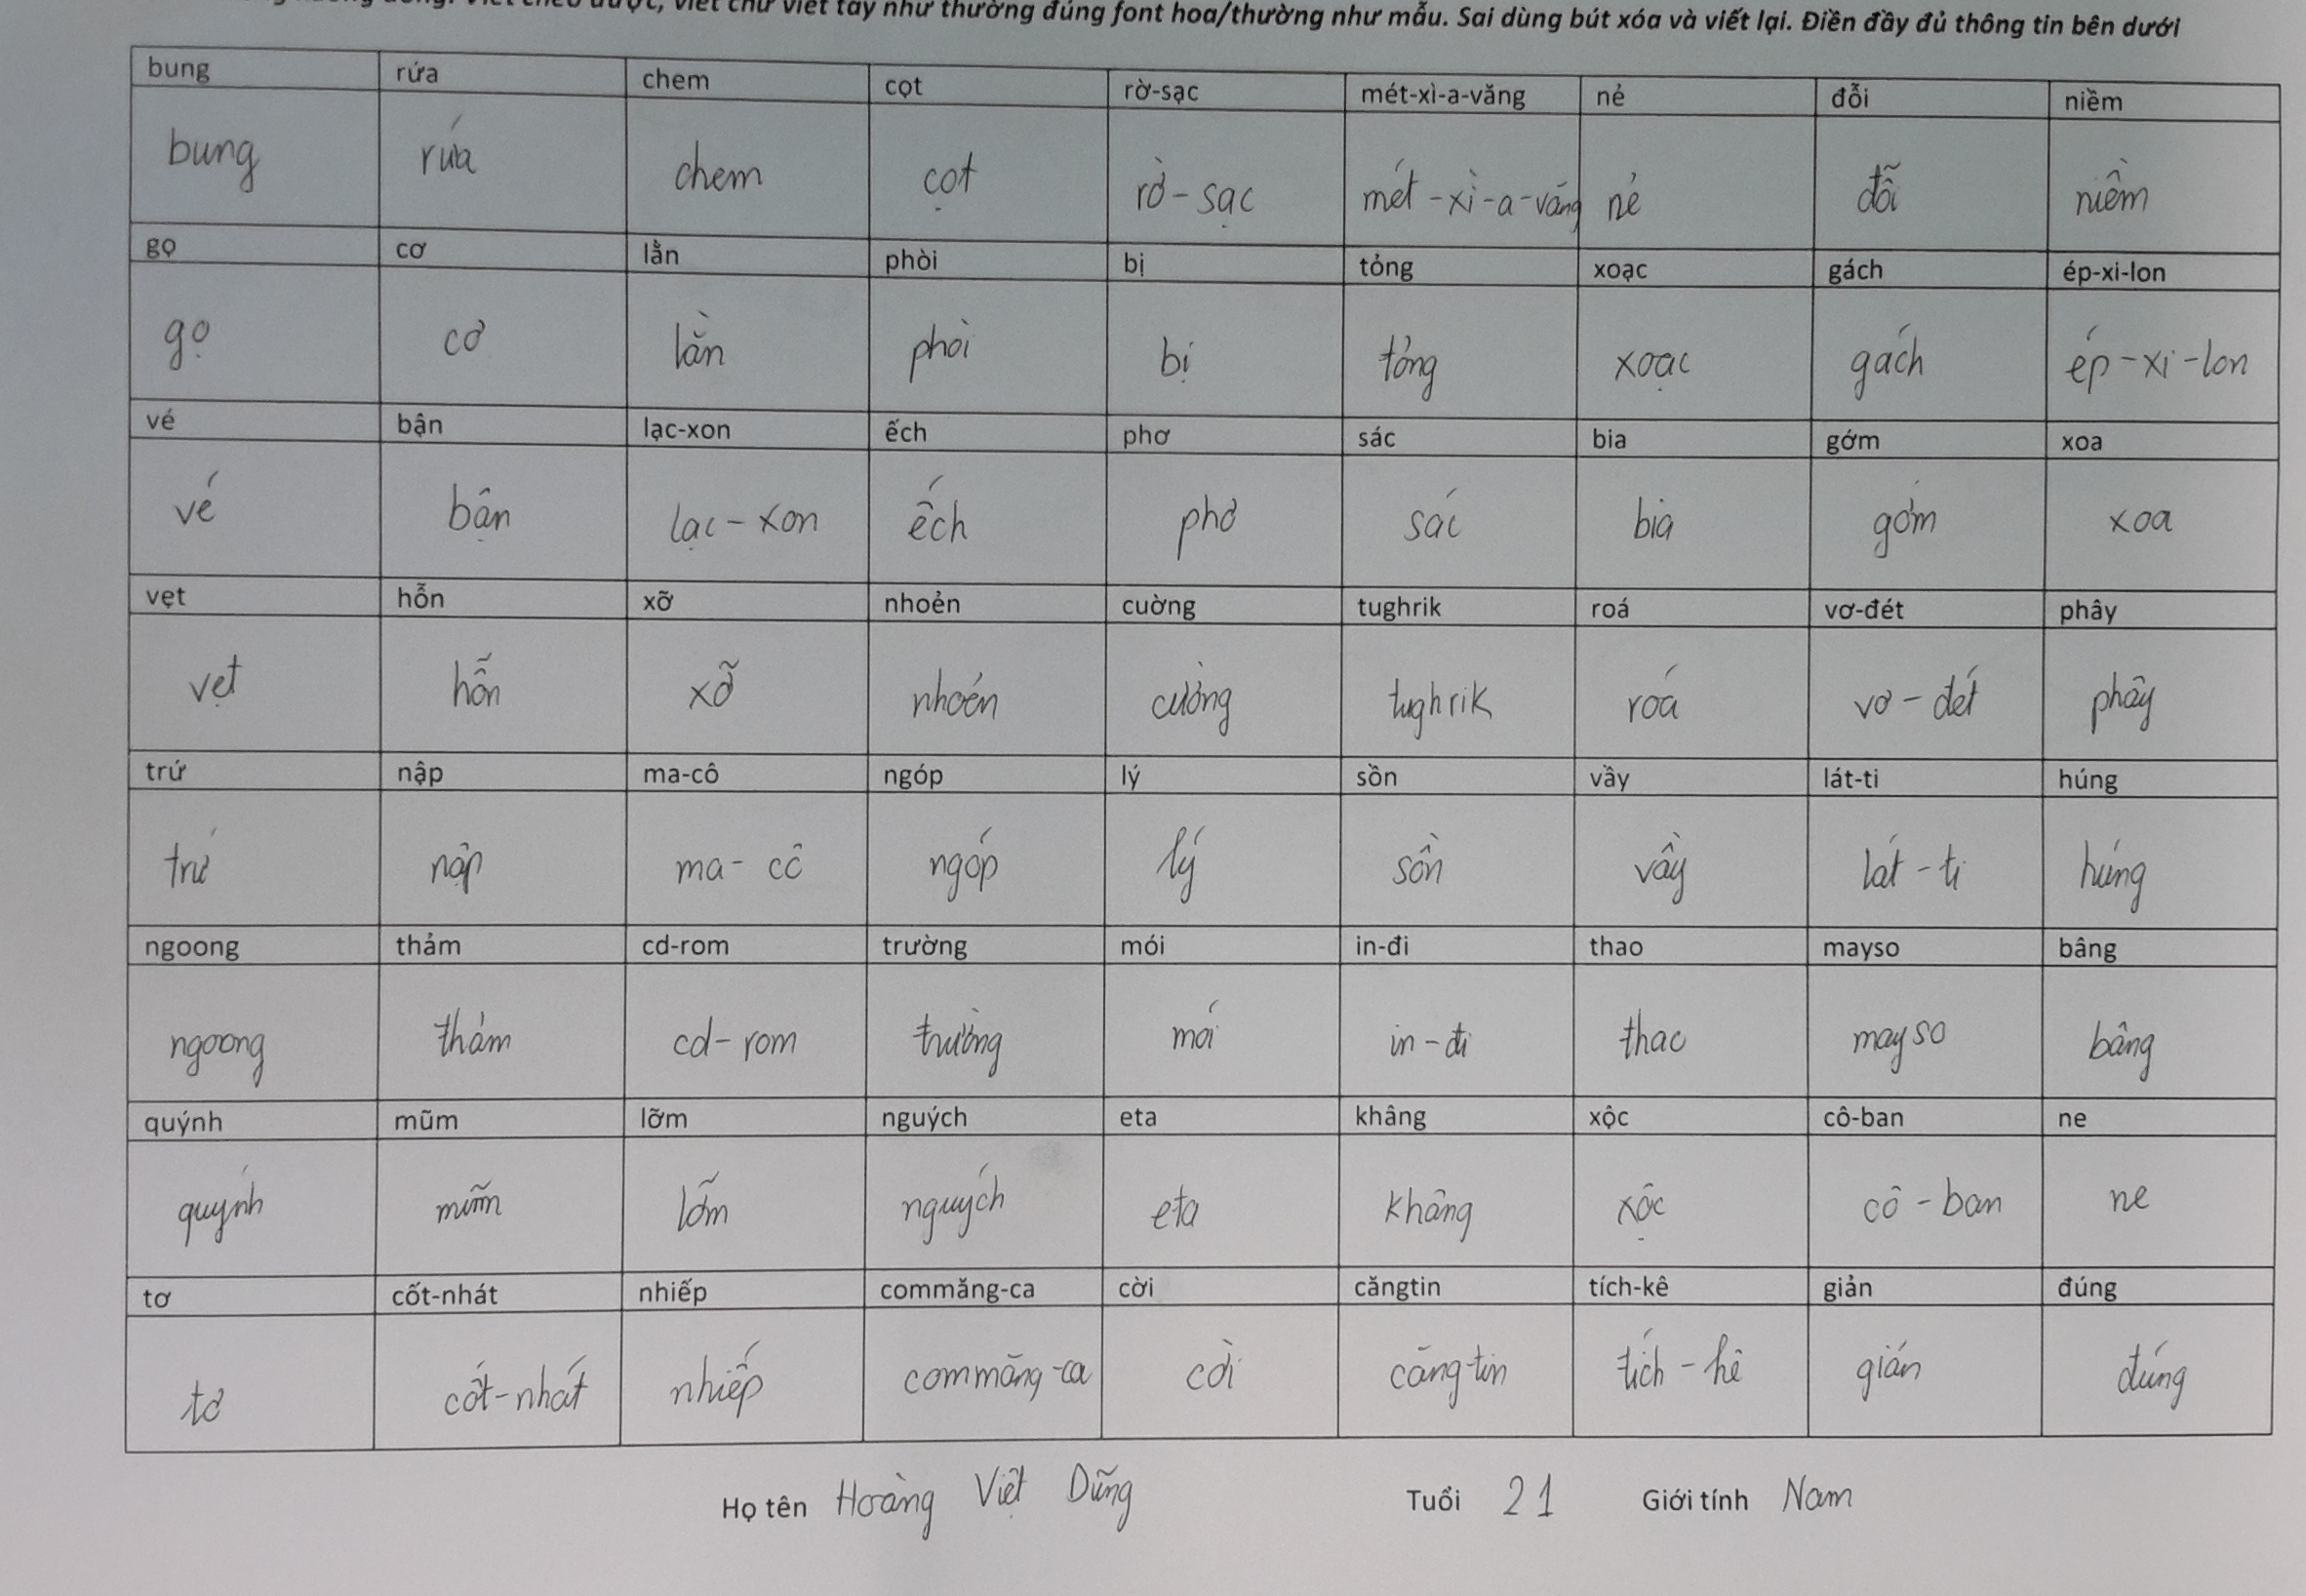 viết chữ viết tay như thường đúng font hoa/thường như mẫu. Sai dùng bút xóa và viết lại. Điền đầy đủ thông tin bên dưới
bung rứa chem cọt rờ-sạc mét-xì-a-văng nẻ đỗi niềm
bung rứa chem cọt rờ-sạc mét-xì-a-văng nẻ đỗi niềm
gọ cơ lằn phòi bị tỏng xoạc gách ép-xi-lon
gọ cơ lằn phòi bị tỏng xoạc gách ép-xi-lon
vé bận lạc-xon ếch phơ sác bia gớm xoa
vé bận lạc-xon ếch phơ sác bia gớm xoa
vẹt hỗn xỡ nhoẻn cuờng tughrik roá vơ-đét phây
vẹt hỗn xỡ nhoẻn cuờng tughrik roá vơ-đét phây
trứ nập ma-cô ngóp lý sồn vầy lát-ti húng
trứ nập ma-cô ngóp lý sồn vầy lát-ti húng
ngoong thảm cd-rom trường mói in-đi thao mayso bâng
ngoong thảm cd-rom trường mói in-đi thao mayso bâng
quýnh mũm lỡm nguých eta khâng xộc cô-ban ne
quýnh mũm lỡm nguých eta khâng xộc cô-ban ne
tơ cốt-nhát nhiếp commăng-ca cời căngtin tích-kê giản đúng
tơ cốt-nhát nhiếp commăng-ca cời căngtin tích-kê giản đúng
Họ tên Hoàng Việt Dũng Tuổi 21 Giới tính Nam